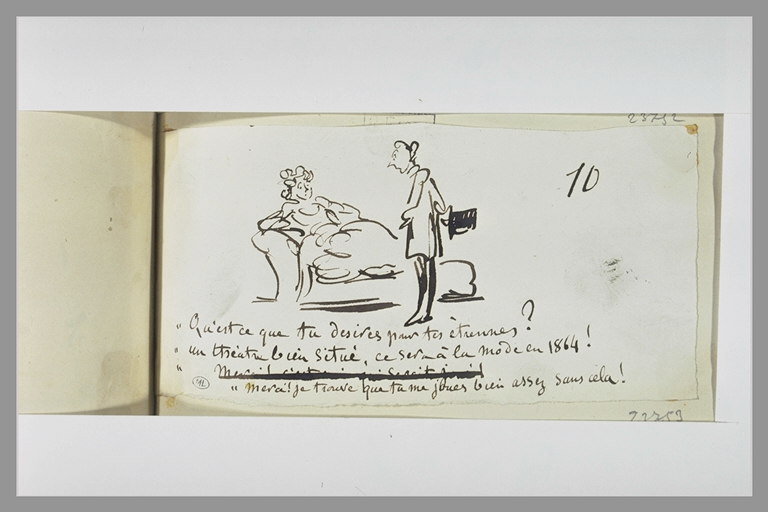 23752
10
" Qu'est ce que tu desires pour tes étrennes ?
" un théatre bien situé, ce sera à la mode en 1864 !
" Merci !
" merci ! je trouve que tu me joues bien assez sans cela !
22753